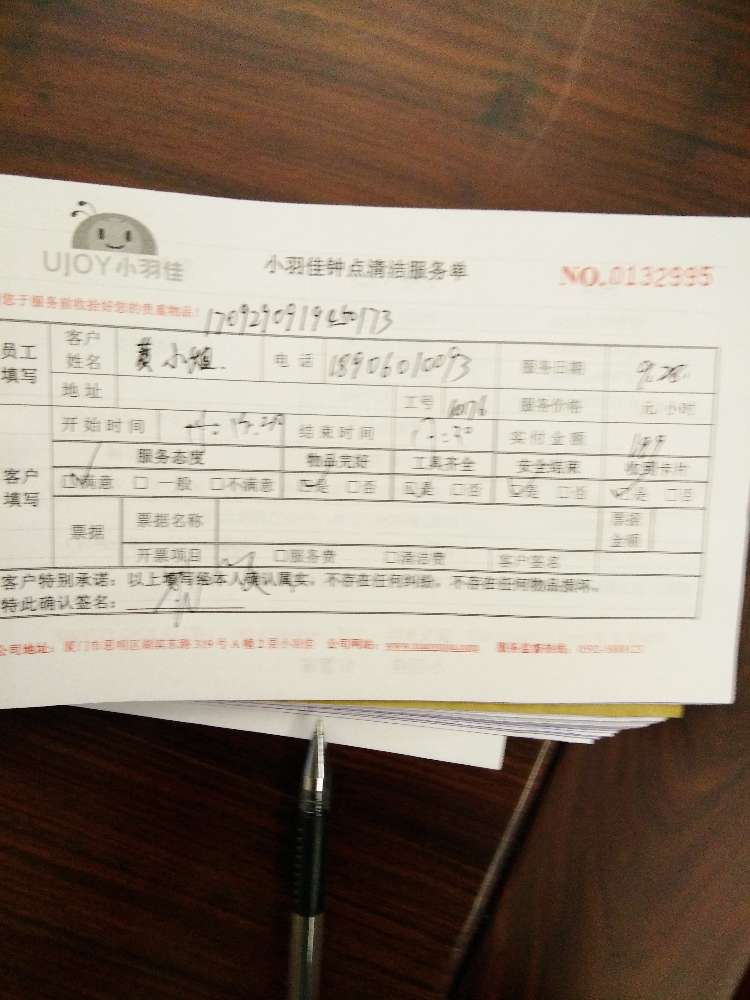 UJOY小羽佳 小羽佳钟点清洁服务单 NO.0132995
您于服务前收拾好您的贵重物品!
员工填写 客户姓名 黄小姐. 电话 18906010093 服务日期 9.28
地址 工号 1076 服务价格 元/小时
开始时间 结束时间 实付金额
客户填写 服务态度 物品完好 工具齐全 安全结束 收到卡片
□满意 □一般 □不满意 □是 □否 □是 □否 □是 □否 □是 □否
票据 票据名称 票据金额
开票项目 □服务费 □清洁费 客户签名
客户特别承诺：以上填写经本人确认属实，不存在任何纠纷，不存在任何物品损坏。
特此确认签名：
公司地址：厦门市思明区湖滨东路319号A幢2层小羽佳 公司网站： 服务监督热线：